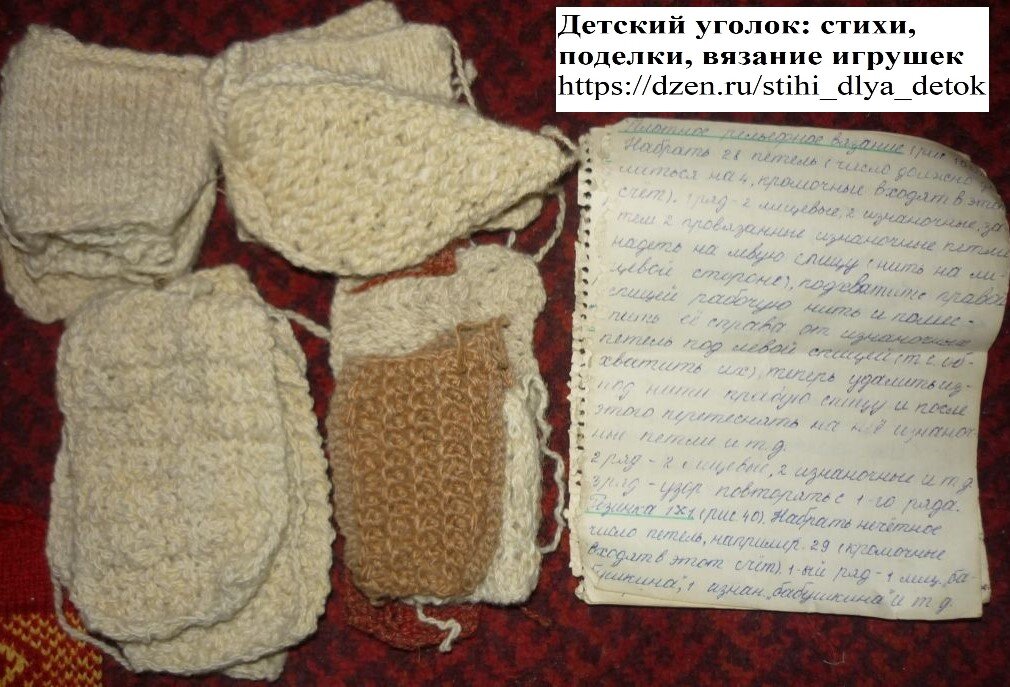 Детский уголок: стихи,
поделки, вязание игрушек
https://dzen.ru/stihi_dlya_detok
Плотное рельефное вязание (рис
Набрать 28 петель (число должно
литься на 4, кромочные входят в этот
счёт). 1 ряд - 2 лицевые, 2 изнаночные, за-
тем 2 провязанные изнаночные петли
надеть на левую спицу (нить на ли-
цевой стороне), подхватить правой
спицей рабочую нить и помес-
тить её справа от изнаночных
петель под левой спицей (т.е. об-
хватить их), теперь удалить из-
под нити правую спицу и после
этого переснять на неё изнаноч-
ные петли и т.д.
2 ряд - 2 лицевые, 2 изнаночные и т.д
3 ряд - узор повторять с 1-го ряда.
Резинка 1х1 (рис 40). Набрать нечётное
число петель, например. 29 (кромочные
входят в этот счёт). 1-ый ряд - 1 лиц. „ба-
бушкина", 1 изнан. „бабушкина" и т.д.